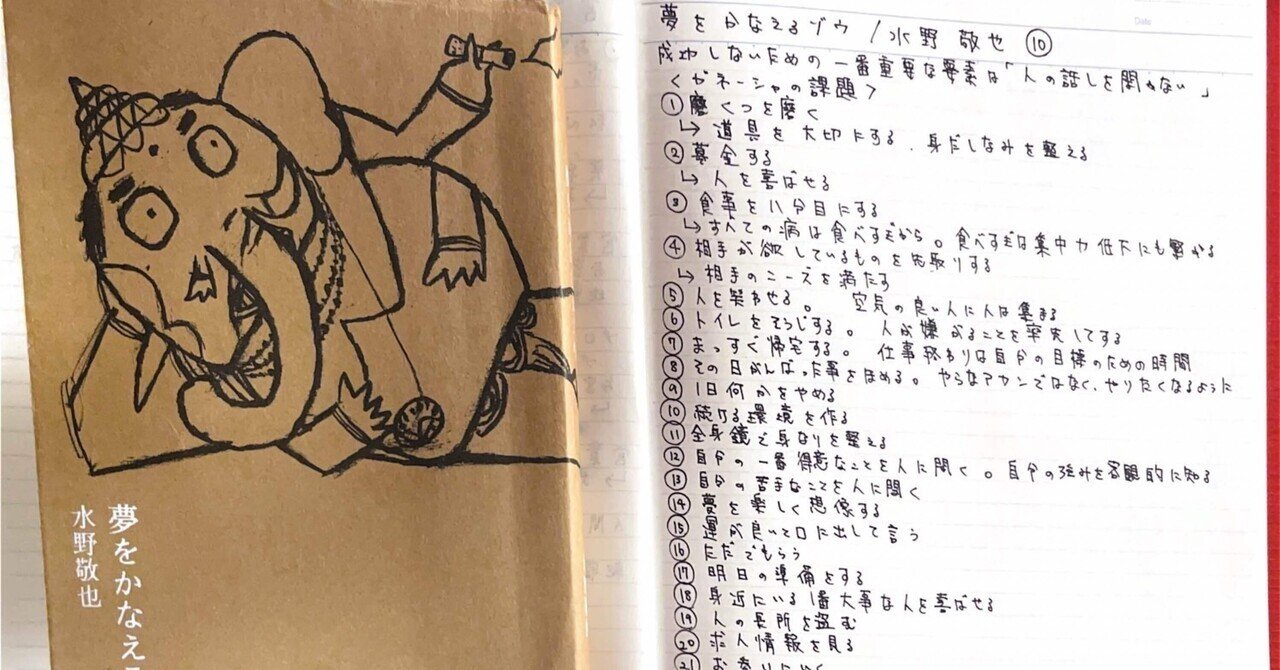 夢をかなえ
水野敬也
Date
夢をかなえるゾウ / 水野 敬也 ⑩
成功しないための一番重要な要素は「人の話しを聞かない」
<ガネーシャの課題>
① 磨くつを磨く
↳ 道具を大切にする、身だしなみを整える
② 募金する
↳ 人を喜ばせる
③ 食事を八分目にする
↳ すべての病は食べすぎから。食べすぎは集中力低下にも繋がる
④ 相手が欲しているものを先取りする
↳ 相手のニーズを満たす
⑤ 人を笑わせる。 空気の良い人に人は集まる
⑥ トイレをそうじする。 人が嫌がることを率先してする
⑦ まっすぐ帰宅する。 仕事終わりは自分の目標のための時間
⑧ その日がんばった事をほめる。やらなアカンではなく、やりたくなるように
⑨ 1日何かをやめる
⑩ 続ける環境を作る
⑪ 全身鏡で身なりを整える
⑫ 自分の一番得意なことを人に聞く。自分の強みを客観的に知る
⑬ 自分の苦手なことを人に聞く
⑭ 夢を楽しく想像する
⑮ 運が良いて口に出して言う
⑯ ただでもらう
⑰ 明日の準備をする
⑱ 身近にいる1番大事な人を喜ばせる
⑲ 人の長所を盗む
⑳ 求人情報を見る
㉑ お参りにいく